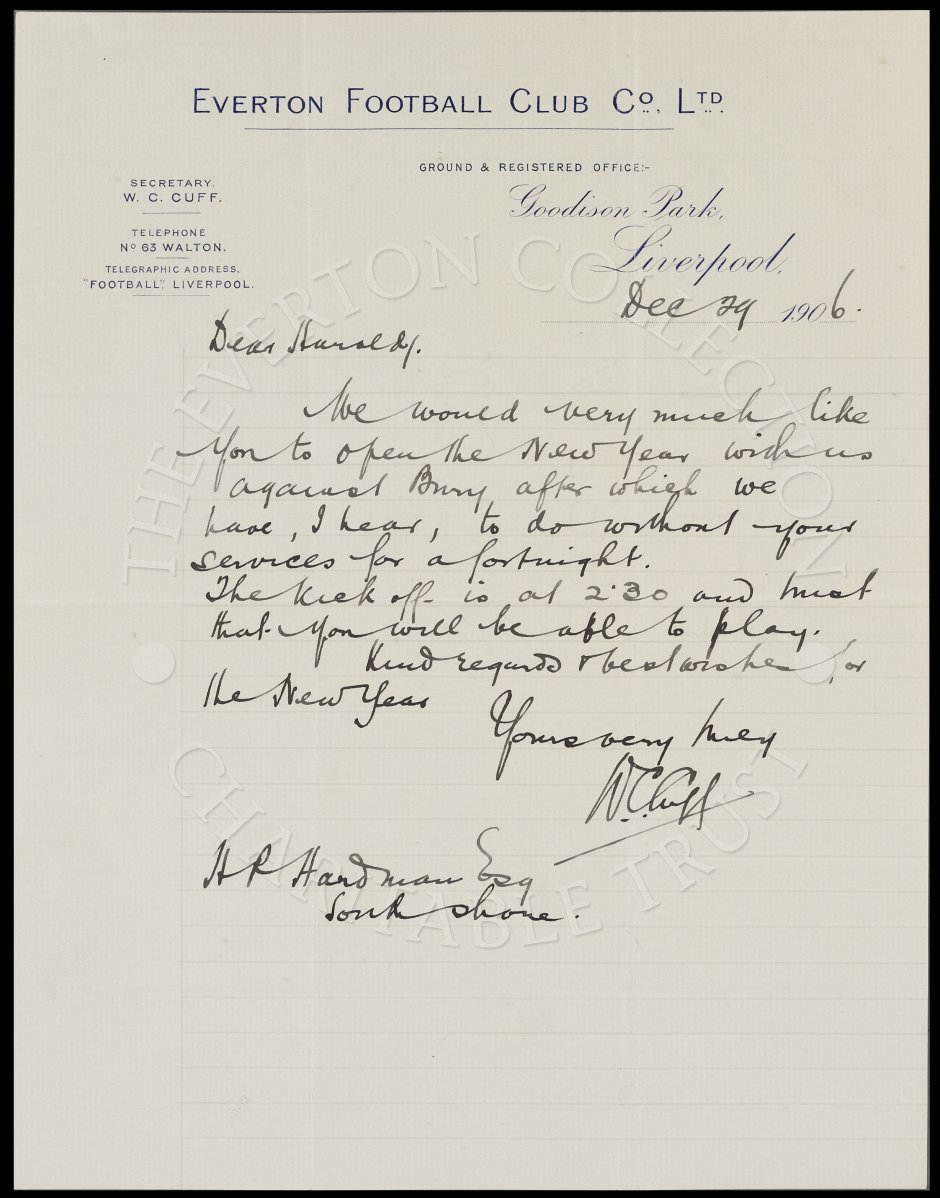 EVERTON FOOTBALL CLUB Cº, LTD.
GROUND & REGISTERED OFFICE:-
SECRETARY.
W. C. CUFF.
Goodison Park,
TELEPHONE
Nº 63 WALTON.
Liverpool,
TELEGRAPHIC ADDRESS,
"FOOTBALL", LIVERPOOL.
Dec 29 1906.
Dear Harold,
We would very much like
you to open the New Year with us
against Bury, after which we
have, I hear, to do without your
services for a fortnight.
The kick off is at 2.30 and trust
that you will be able to play.
Kind regards & best wishes for
the New Year
Yours very truly
W.C. Cuff
H P Hardman Esq
South Shore.
THE EVERTON COLLECTION
CHARITABLE TRUST